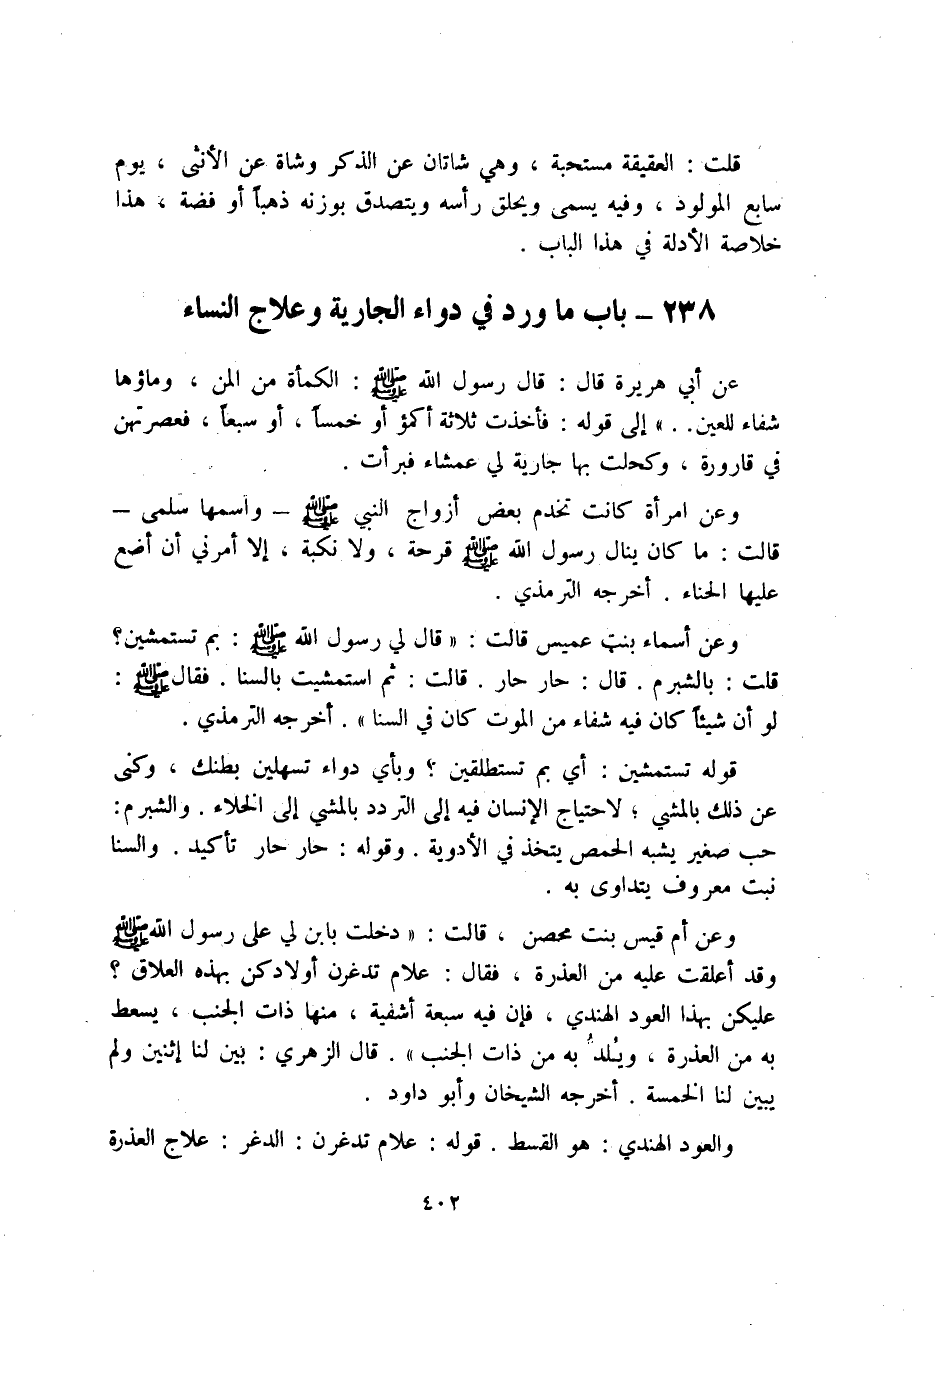 قلت : العقيقة مستحبة ، وهي شاتان عن الذكر وشاة عن الأنثى ، يوم
سابع المولود ، وفيه يسمى ويحلق رأسه ويتصدق بوزنه ذهباً أو فضة ، هذا
خلاصة الأدلة في هذا الباب .
٢٣٨ – باب ما ورد في دواء الجارية وعلاج النساء
عن أبي هريرة قال : قال رسول الله ﷺ : الكمأة من المن ، وماؤها
شفاء للعين. . » إلى قوله : فأخذت ثلاثة أكمؤ أو خمساً ، أو سبعاً ، فعصرتهن
في قارورة ، وكحلت بها جارية لي عمشاء فبرأت .
وعن امرأة كانت تخدم بعض أزواج النبي ﷺ – واسمها سلمى –
قالت : ما كان ينال رسول الله ﷺ قرحة ، ولا نكبة ، إلا أمرني أن أضع
عليها الحناء . أخرجه الترمذي .
وعن أسماء بنت عميس قالت : « قال لي رسول الله ﷺ : بم تستمشين؟
قلت : بالشبرم . قال : حار حار . قالت : ثم استمشيت بالسنا . فقال ﷺ :
لو أن شيئاً كان فيه شفاء من الموت كان في السنا » . أخرجه الترمذي .
قوله تستمشين : أي بم تستطلقين ؟ وبأي دواء تسهلين بطنك ، وكنى
عن ذلك بالمشي ؛ لاحتياج الإنسان فيه إلى التردد بالمشي إلى الخلاء . والشبرم:
حب صغير يشبه الحمص يتخذ في الأدوية . وقوله : حار حار تأكيد . والسنا
نبت معروف يتداوى به .
وعن أم قيس بنت محصن ، قالت : « دخلت بابن لي على رسول الله ﷺ
وقد أعلقت عليه من العذرة ، فقال : علام تدغرن أولادكن بهذه العلاق ؟
عليكن بهذا العود الهندي ، فإن فيه سبعة أشفية ، منها ذات الجنب ، يسعط
به من العذرة ، ويُلدُّ به من ذات الجنب » . قال الزهري : بين لنا إثنين ولم
يبين لنا الخمسة . أخرجه الشيخان وأبو داود .
والعود الهندي : هو القسط . قوله : علام تدغرن : الدغر : علاج العذرة
٤٠٢